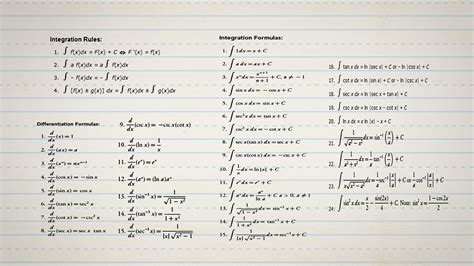 Integration Rules:
1. ∫ f(x)dx = F(x) + C ⇔ F '(x) = f(x)
2. ∫ a f(x)dx = a ∫ f(x)dx
3. ∫ - f(x)dx = - ∫ f(x)dx
4. ∫ [f(x) ± g(x)] dx = ∫ f(x)dx ± ∫ g(x)dx
Differentiation Formulas:
1. d/dx (x) = 1
2. d/dx (ax) = a
3. d/dx (xⁿ) = nxⁿ⁻¹
4. d/dx (cos x) = −sin x
5. d/dx (sin x) = cos x
6. d/dx (tan x) = sec² x
7. d/dx (cot x) = −csc² x
8. d/dx (sec x) = sec x tan x
9. d/dx (csc x) = −csc x(cot x)
10. d/dx (ln x) = 1/x
11. d/dx (eˣ) = eˣ
12. d/dx (aˣ) = (ln a)aˣ
13. d/dx (sin⁻¹ x) = 1/√(1 − x²)
14. d/dx (tan⁻¹ x) = 1/(1 + x²)
15. d/dx (sec⁻¹ x) = 1/(|x|√(x² − 1))
Integration Formulas:
1. ∫ 1 dx = x + C
2. ∫ a dx = ax + C
3. ∫ xⁿ dx = xⁿ⁺¹/(n + 1) + C, n ≠ −1
4. ∫ sin x dx = −cos x + C
5. ∫ cos x dx = sin x + C
6. ∫ sec² x dx = tan x + C
7. ∫ csc² x dx = −cot x + C
8. ∫ sec x(tan x) dx = sec x + C
9. ∫ csc x(cot x) dx = −csc x + C
10. ∫ 1/x dx = ln |x| + C
11. ∫ eˣ dx = eˣ + C
12. ∫ aˣ dx = aˣ/ln a + C a > 0, a ≠ 1
13. ∫ 1/√(1 − x²) dx = sin⁻¹ x + C
14. ∫ 1/(1 + x²) dx = tan⁻¹ x + C
15. ∫ 1/(|x|√(x² − 1)) dx = sec⁻¹ x + C
16. ∫ tan x dx = ln |sec x| + C or - ln |cos x| + C
17. ∫ cot x dx = ln |sin x| + C or - ln |csc x| + C
18. ∫ sec x dx = ln |sec x + tan x| + C
19. ∫ csc x dx = -ln |csc x + cot x| + C
20. ∫ ln x dx = x ln |x| - x + C
21. ∫ dx/√(a² − x²) = sin⁻¹(x/a) + C
22. ∫ dx/(a² + x²) = 1/a tan⁻¹(x/a) + C
23. ∫ dx/(x√(x² − a²)) = 1/a sec⁻¹|x/a| + C
24. ∫ sin² x dx = x/2 − sin(2x)/4 + C. Note: sin² x = (1 − cos 2x)/2